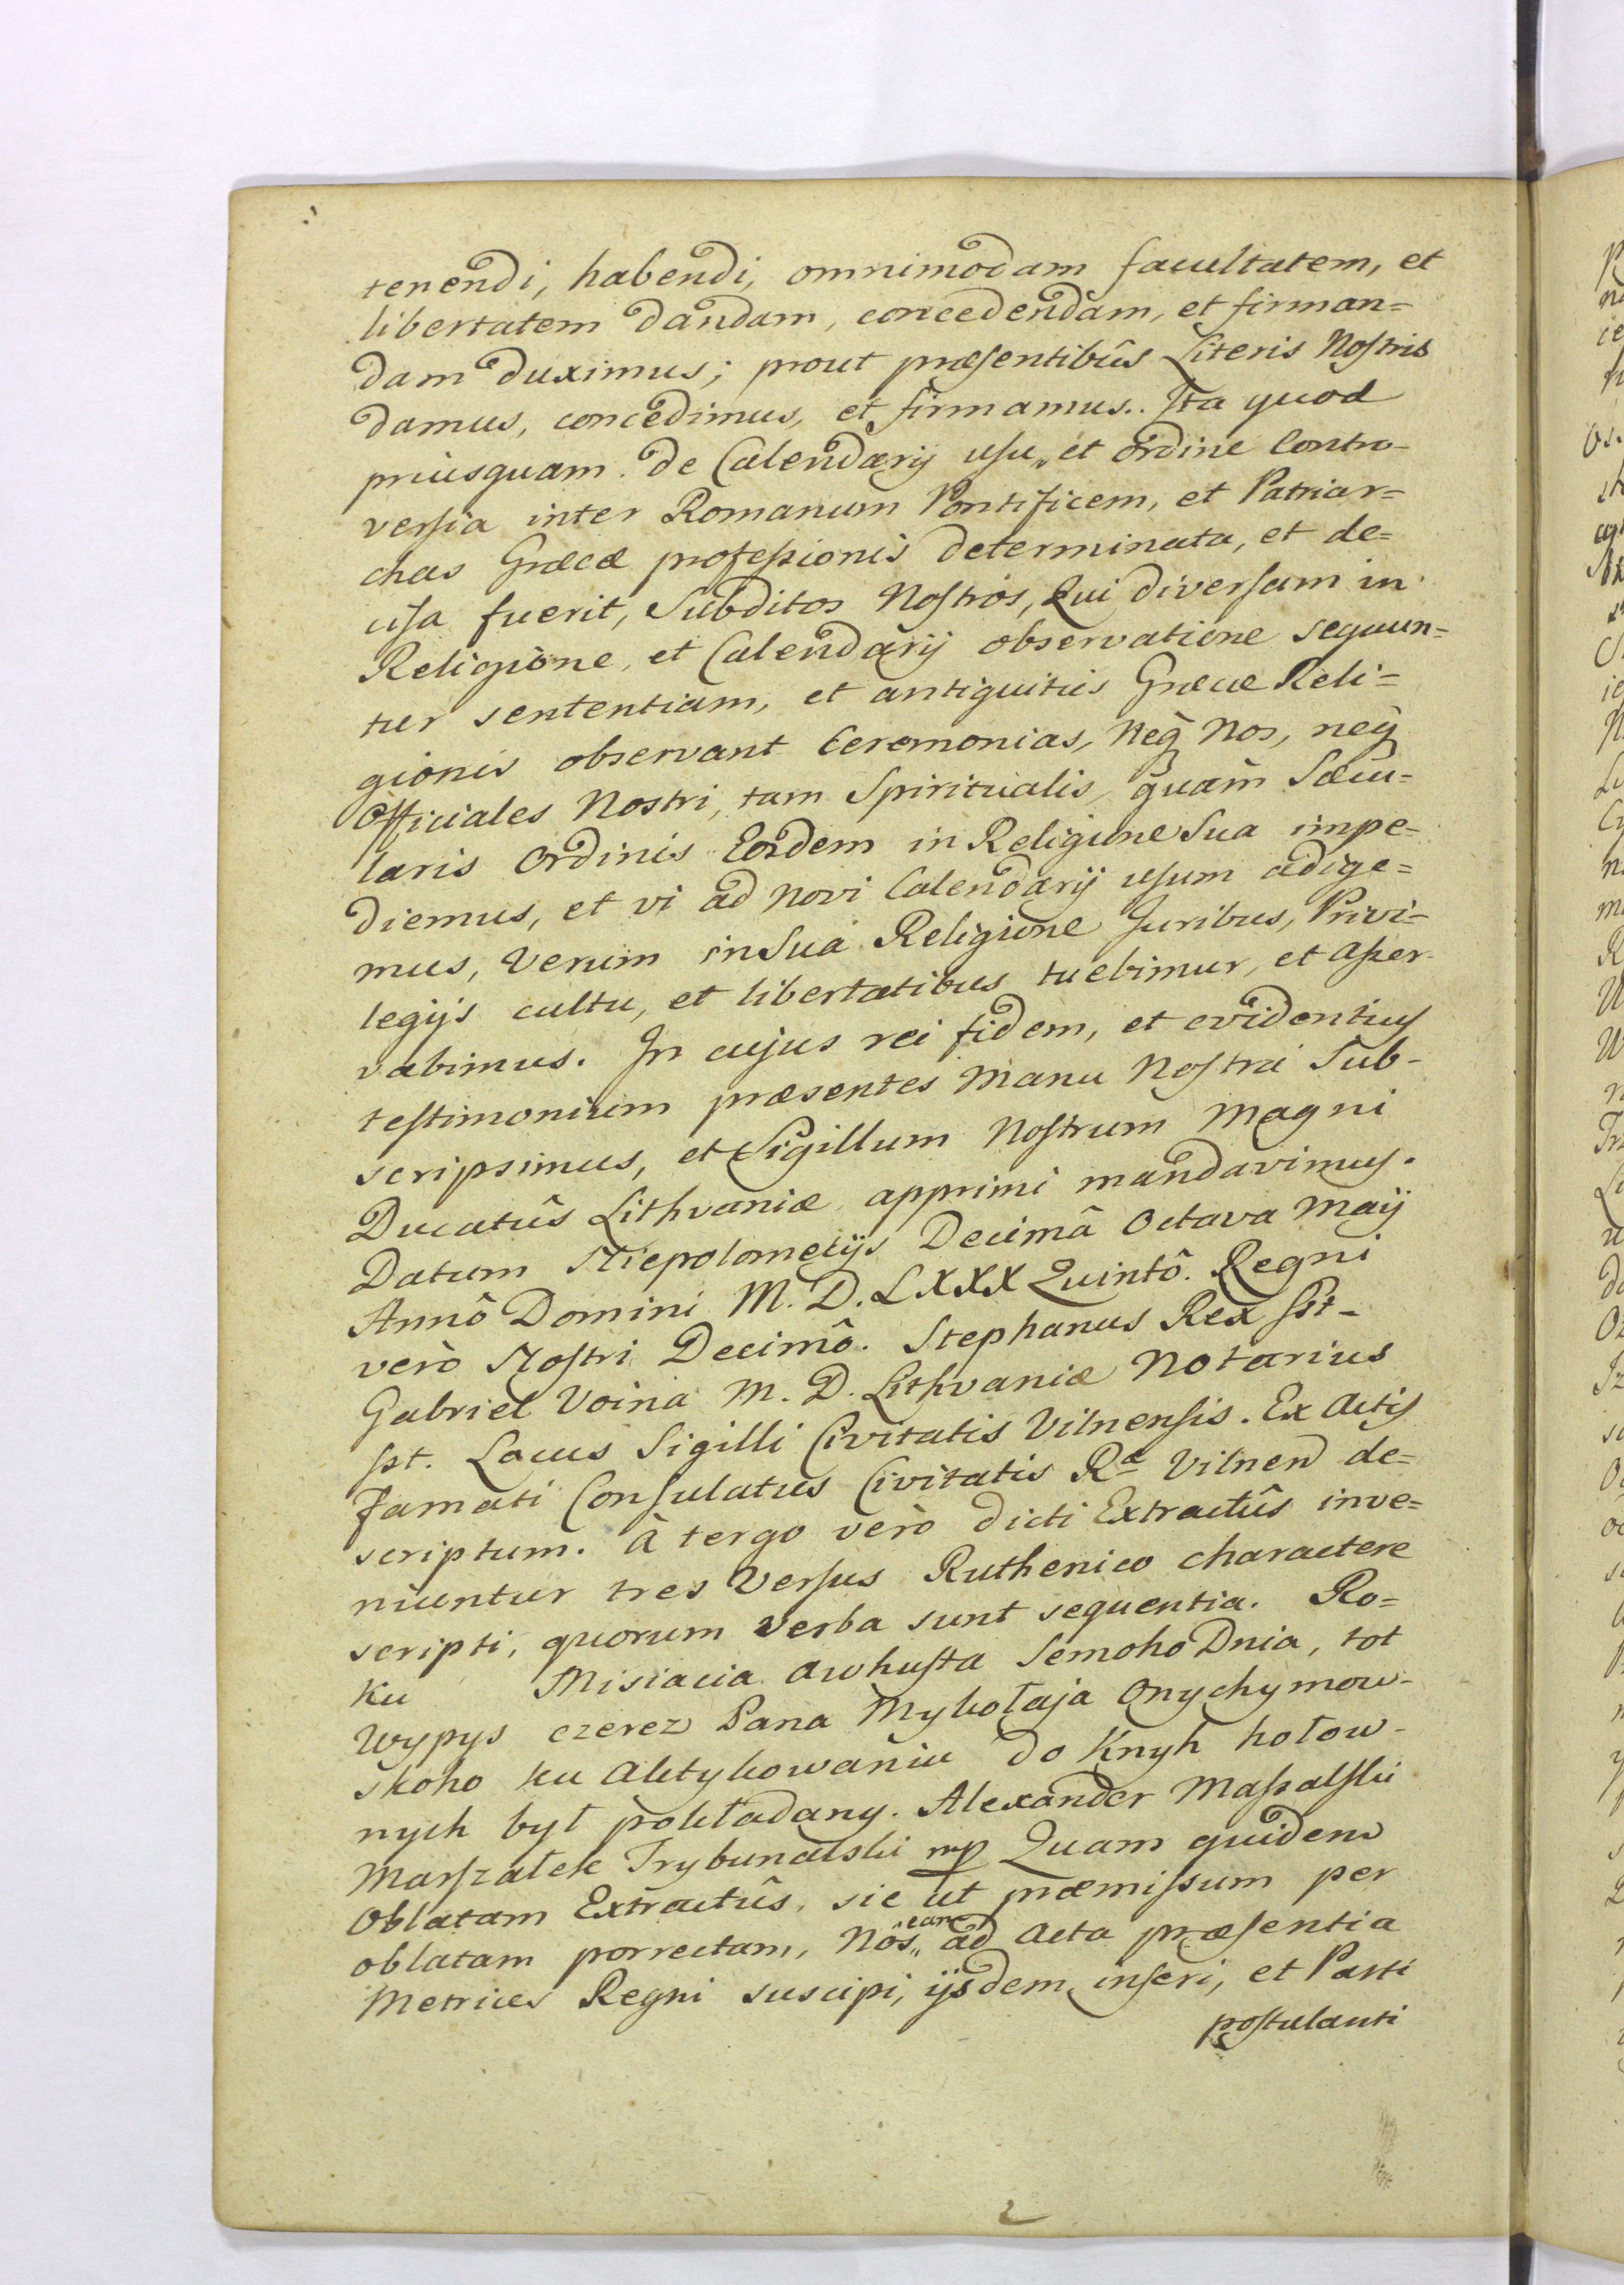 tenendi, habendi, omnimodam facultatem, et
libertatem dandam, concedendam, et firman=
dam duximus; prout præsentibûs Literis Nostris
damus, concedimus, et firmamus.. Ita quod
priusquam de Calendarij usu, et ordine Contro-
versia inter Romanum Pontificem, et Patriar=
chas Græcæ professionis determinata, et de=
cisa fuerit, Subditos Nostros, Qui diversam in
Religione, et Calendarij observatione sequun=
tur sententiam, et antiquitus Græcæ Reli=
gionis observant Ceremonias, Neq̀ Nos, neq̀
Officiales Nostri, tam Spiritualis, quam Sæcu-
laris Ordinis Eosdem in Religione Sua impe-
diemus, et vi ad Novi Calendarij usum adige=
mus, Verum in Sua Religione Juribus, Privi-
legijs cultu, et libertatibus tuebimur, et asser-
vabimus. In cujus rei fidem, et evidentius
testimonium præsentes Manu Nostra Sub-
scripsimus, et Sigillum Nostrum Magni
Ducatûs Lithvaniæ apprimi mandavimus.
Datum Niepolomecijs Decimâ Octava Maij
Annô Domini M. D. LXXX Quintô. Regni
verò Nostri Decimô. Stephanus Rex sst-
Gabriel Voina M. D. Lithvaniæ Notarius
sst. Locus Sigilli Civitatis Vilnensis. Ex Actis
Famati Consulatus Civitatis Ræ Vilnen de=
scriptum. à tergo verò dicti Extractûs inve=
niuntur tres Versus Ruthenico charactere
scripti, quorum verba sunt sequentia. Ro=
ku Misiacia Awhusta Semoho Dnia, tot
Wypys czerez Pana Mykołaja Onychymow-
skoho ku Aktykowaniu do Knyh hołow-
nych był pokładany. Alexander Massalski
Marszałek Trybunalski mp Quam quidem
Oblatam Extractûs, sic ut præmissum per
oblatam porrectam, Nôs,, eam ad Acta præsentia
Metrices Regni suscipi, ijsdem inseri, et Parti
postulanti
2